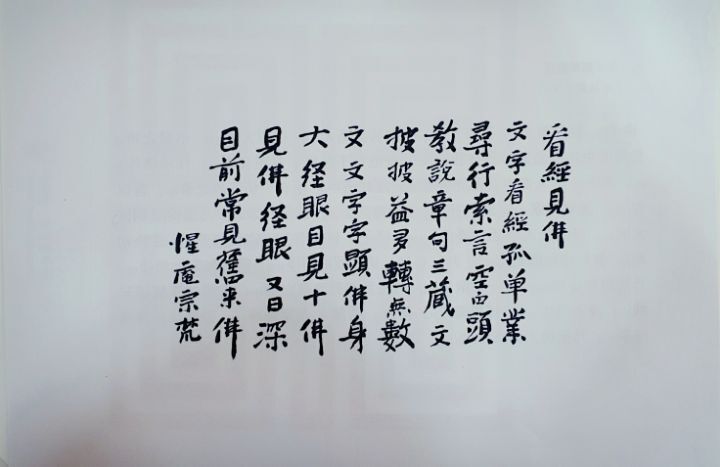 看經見佛
文字看經孤单業
尋行索言空西頭
教說章句三藏文
披披益多轉無數
文文字字顯佛身
大経眼目見十佛
見佛経眼又日深
目前常見舊来佛
惺庵宗梵